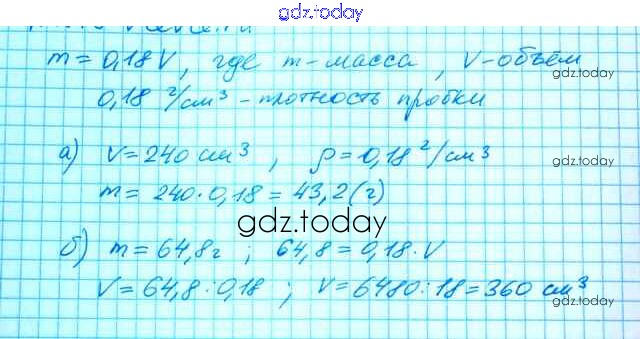 gdz.today
m = 0,18 V, где m - масса, V - объём
gdz.today
0,18 г/см³ - плотность пробки
а) V = 240 см³, ρ = 0,18 г/см³
gdz.today
m = 240 · 0,18 = 43,2 (г)
gdz.today
б) m = 64,8 г ; 64,8 = 0,18 · V
V = 64,8 : 0,18 ; V = 6480 : 18 = 360 см³
gdz.today